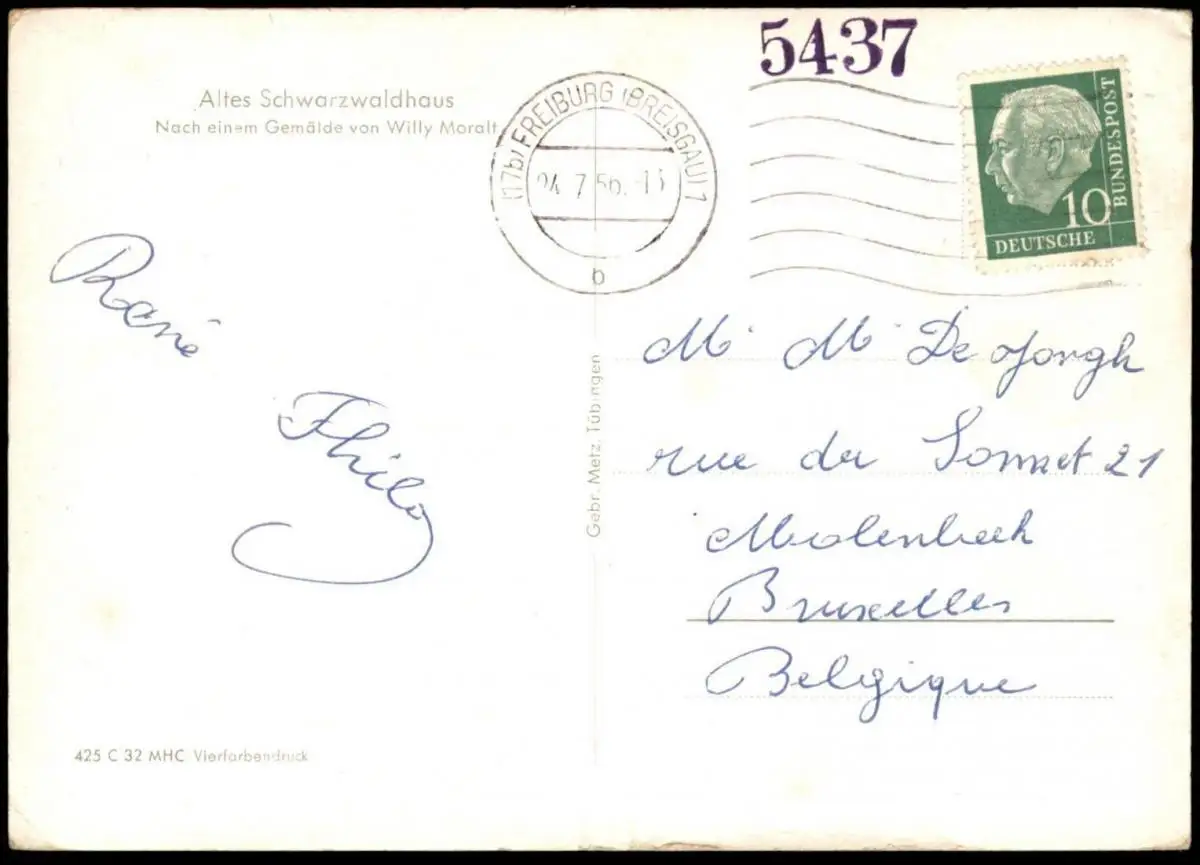 5437
Altes Schwarzwaldhaus
Nach einem Gemälde von Willy Moralt
(17b) FREIBURG (BREISGAU) 1
24.7.56.-13
b
10
DEUTSCHE
BUNDESPOST
René
Thilo
Gebr. Metz, Tübingen
M M De Jongh
rue du Sonnet 21
Molenbeek
Bruxelles
Belgique
425 C 32 MHC Vierfarbendruck